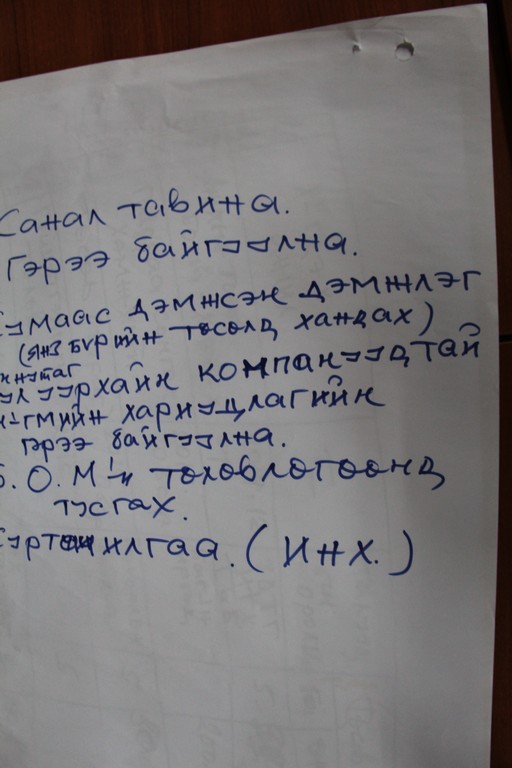 Санал тавина.
Гэрээ байгуулна.
Сумаас дэмжсэн дэмжлэг
(янз бүрийн төсөлд хандах)
Уул уурхайн компануудтай
нийгмийн хариуцлагийн
гэрээ байгуулна.
Б.О.М-н төлөвлөгөөнд
тусгах.
Сурталчилгаа. (ИНХ.)